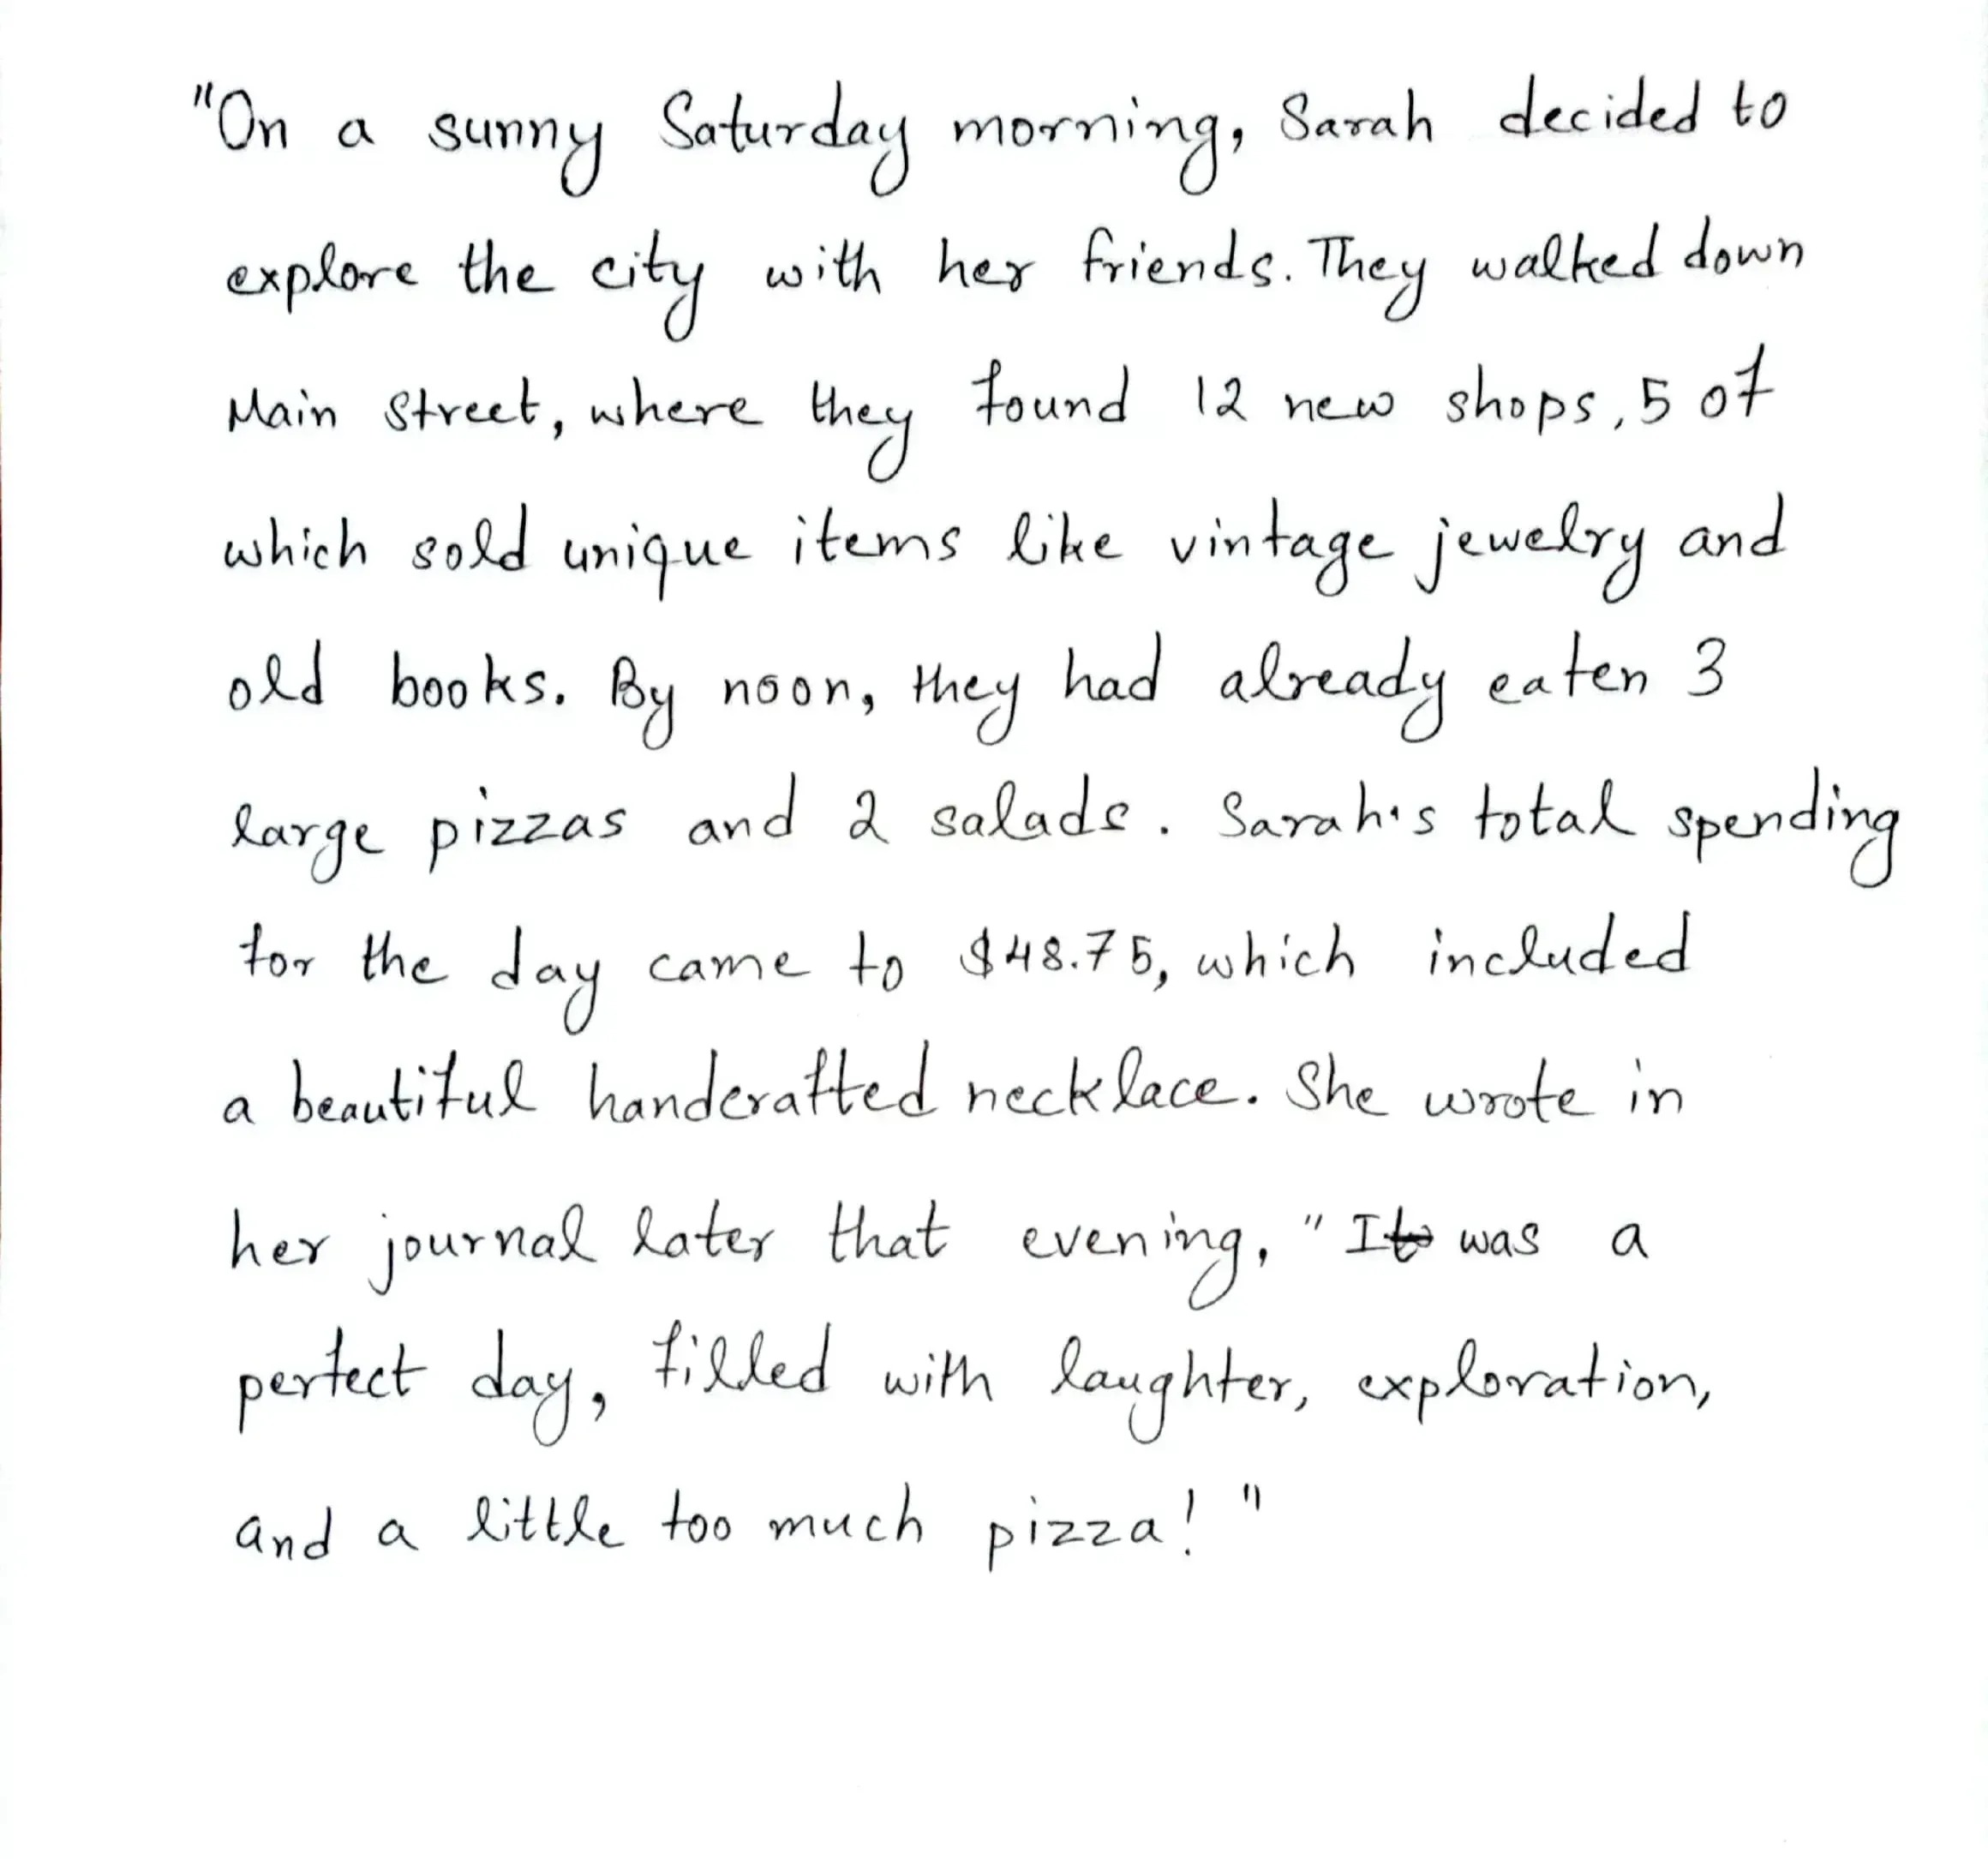 "On a sunny Saturday morning, Sarah decided to
explore the city with her friends. They walked down
Main Street, where they found 12 new shops, 5 of
which sold unique items like vintage jewelry and
old books. By noon, they had already eaten 3
large pizzas and 2 salads. Sarah's total spending
for the day came to $48.75, which included
a beautiful handcrafted necklace. She wrote in
her journal later that evening, "It was a
perfect day, filled with laughter, exploration,
and a little too much pizza!"